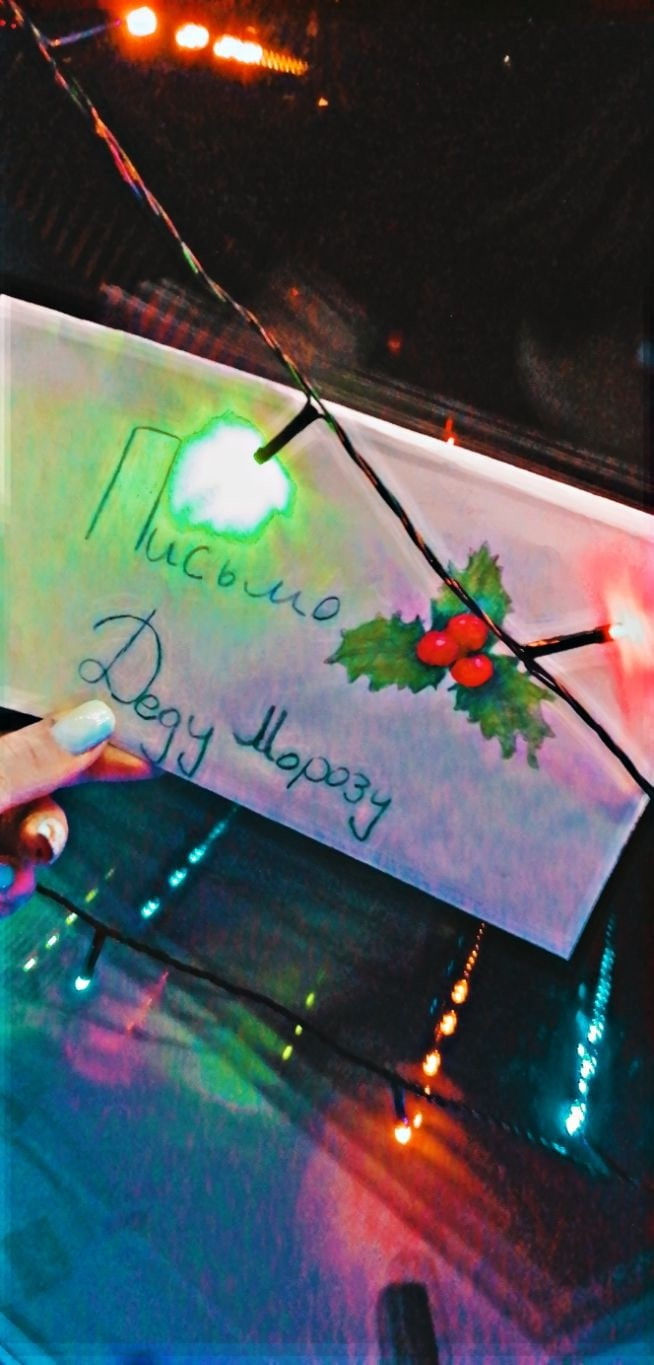 Письмо
Деду Морозу